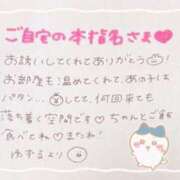 ご自宅の本指名さま♥
お誘いしてくれてありがとう
お部屋も温めてくれて、あの子は
バタン…してて、何回来ても
落ち着く空間です♡ちゃんとご飯
食べてね♡またね!
ゆずより